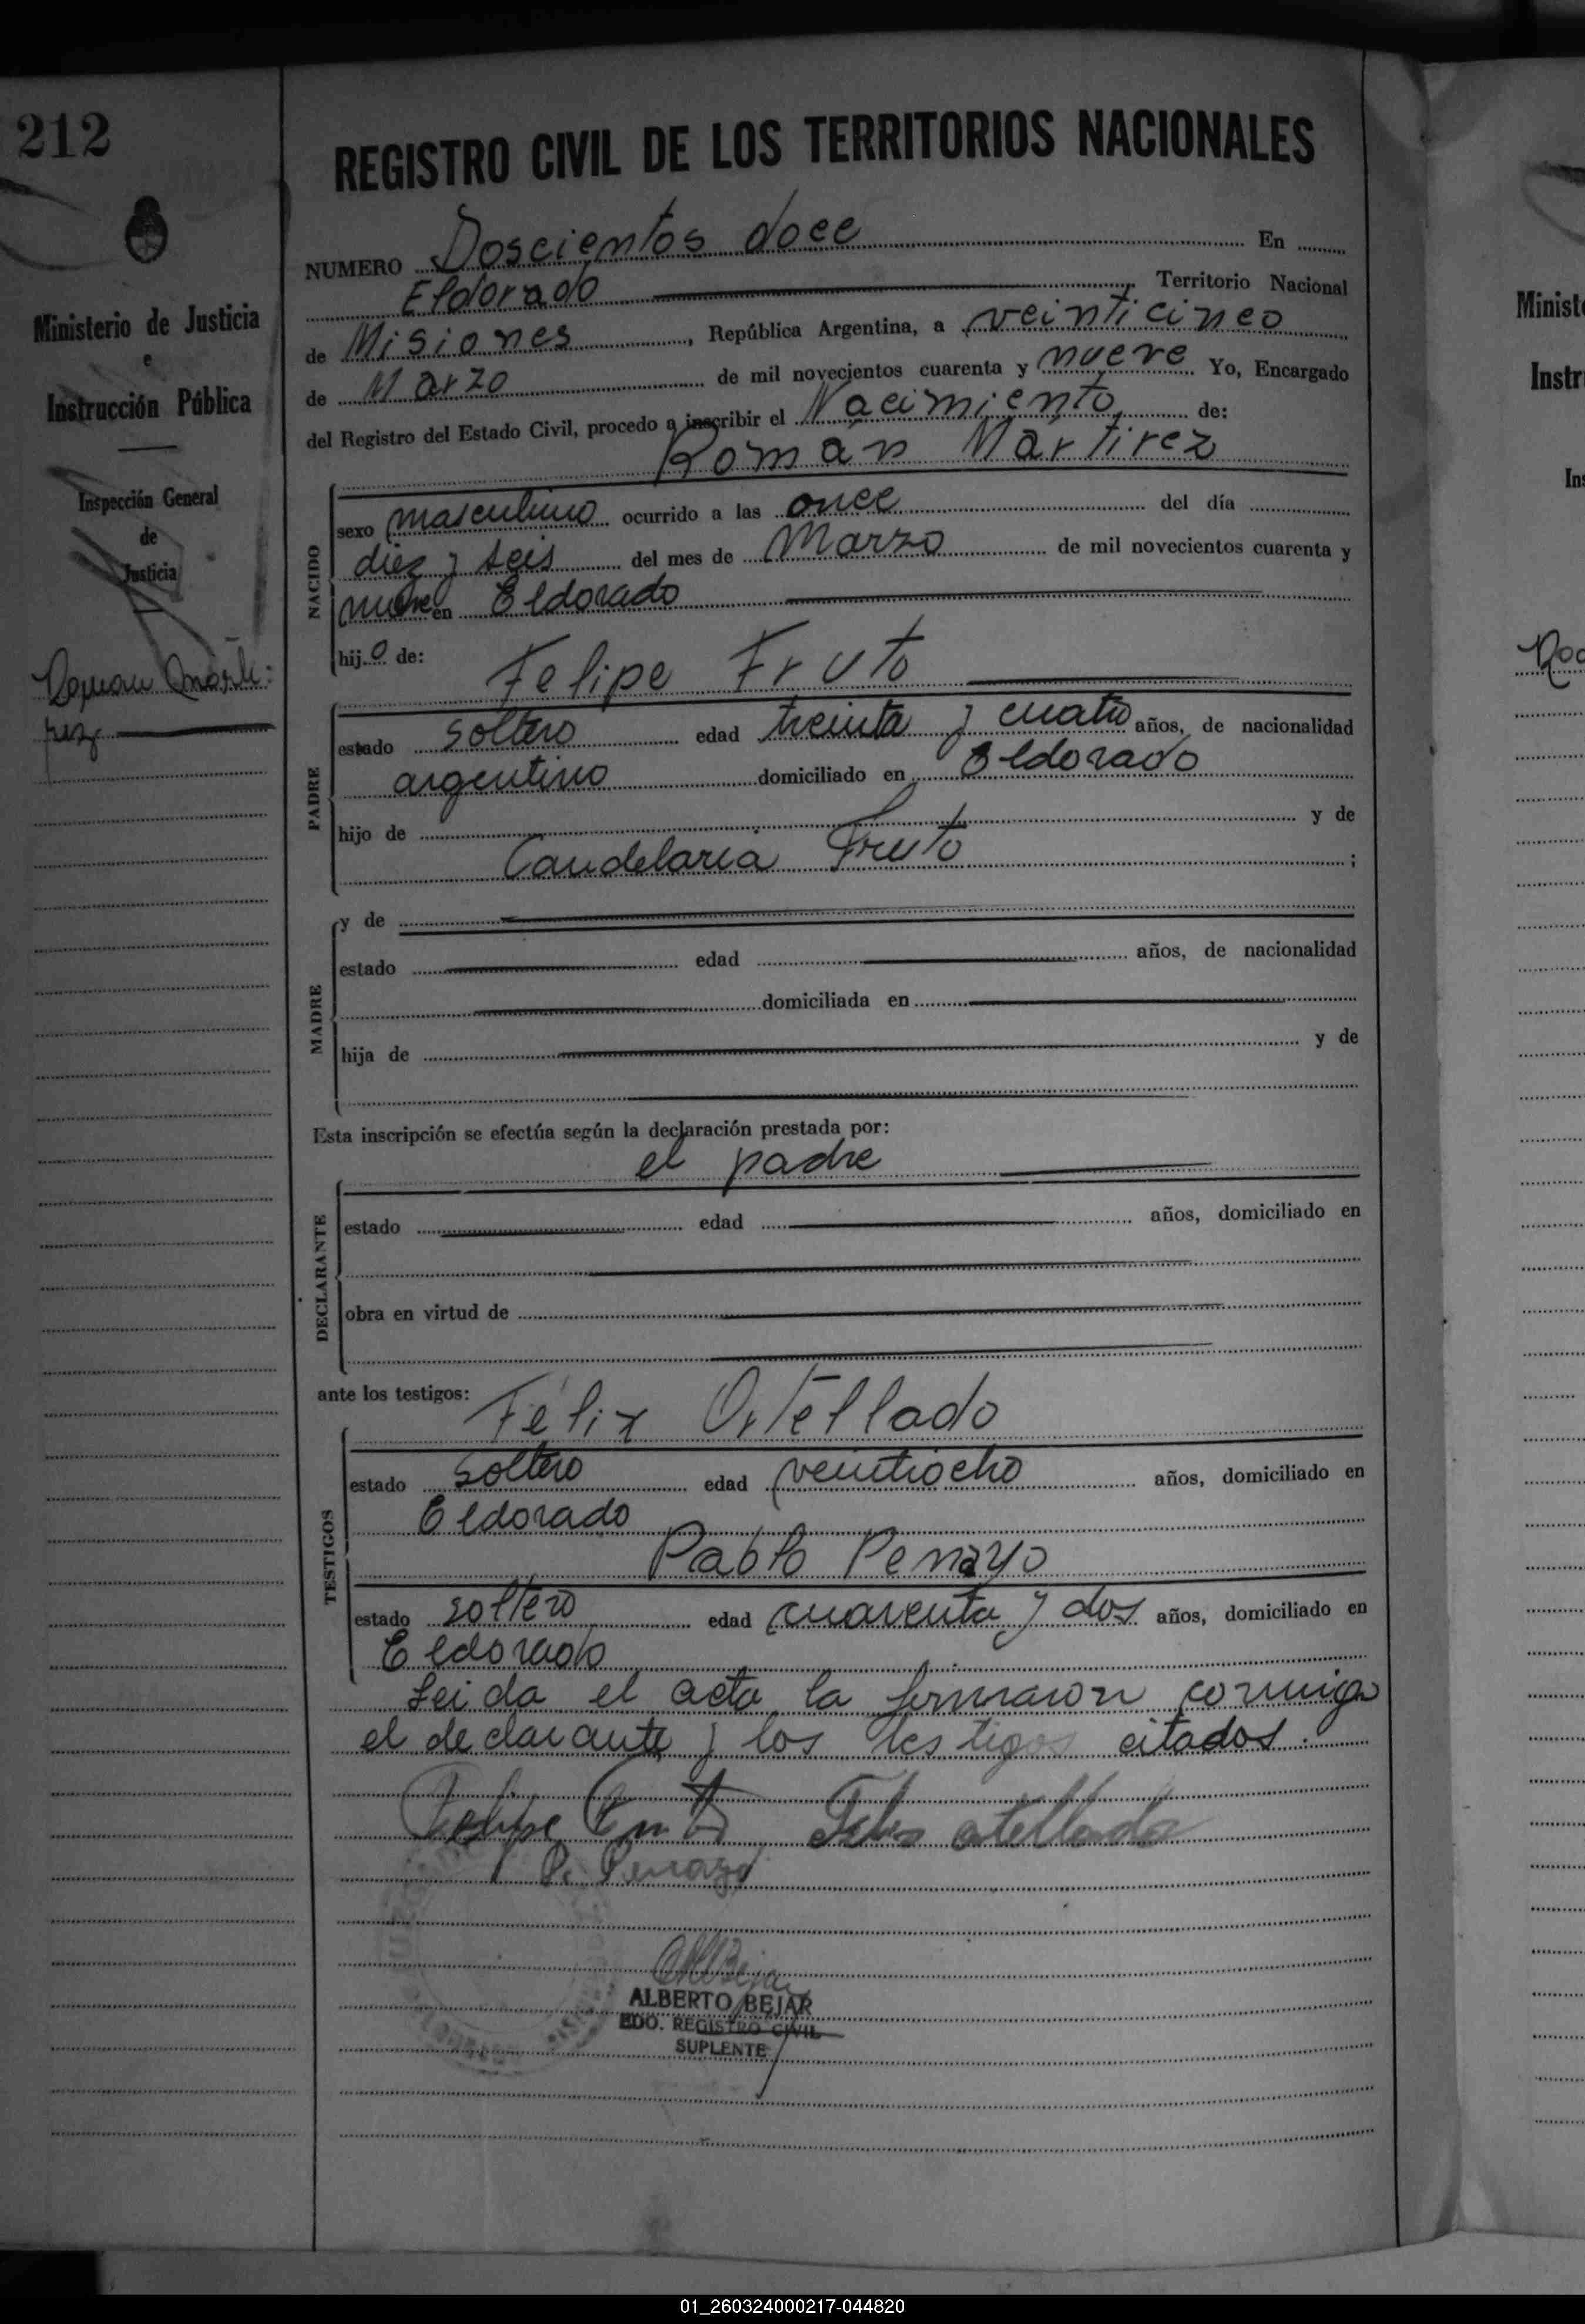 212
Ministerio de Justicia
e
Instrucción Pública
Inspección General
de
Justicia
Roman Marti:
rez
REGISTRO CIVIL DE LOS TERRITORIOS NACIONALES
NUMERO Doscientos doce En
Eldorado Territorio Nacional
de Misiones, República Argentina, a veinticinco
de Marzo de mil novecientos cuarenta y nueve Yo, Encargado
del Registro del Estado Civil, procedo a inscribir el Nacimiento de:
Román Mártirez
NACIDO
sexo masculino ocurrido a las once del día
diez y seis del mes de Marzo de mil novecientos cuarenta y
nueve en Eldorado
hijo de: Felipe Fruto
PADRE
estado soltero edad treinta y cuatro años, de nacionalidad
argentino domiciliado en Eldorado
hijo de y de
Candelaria Fruto ;
MADRE
y de
estado edad años, de nacionalidad
domiciliada en
hija de y de
Esta inscripción se efectúa según la declaración prestada por:
el padre
DECLARANTE
estado edad años, domiciliado en
obra en virtud de
ante los testigos: Félix Ortellado
TESTIGOS
estado soltero edad veintiocho años, domiciliado en
Eldorado
Pablo Penayo
estado soltero edad cuarenta y dos años, domiciliado en
Eldorado
Leida el acta la firmaron conmigo
el declarante y los testigos citados.
Felipe Felix ortellado
P. Penayo
ALBERTO BEJAR
EDO. REGISTRO CIVIL
SUPLENTE
Minist
Instr
In
01_260324000217-044820